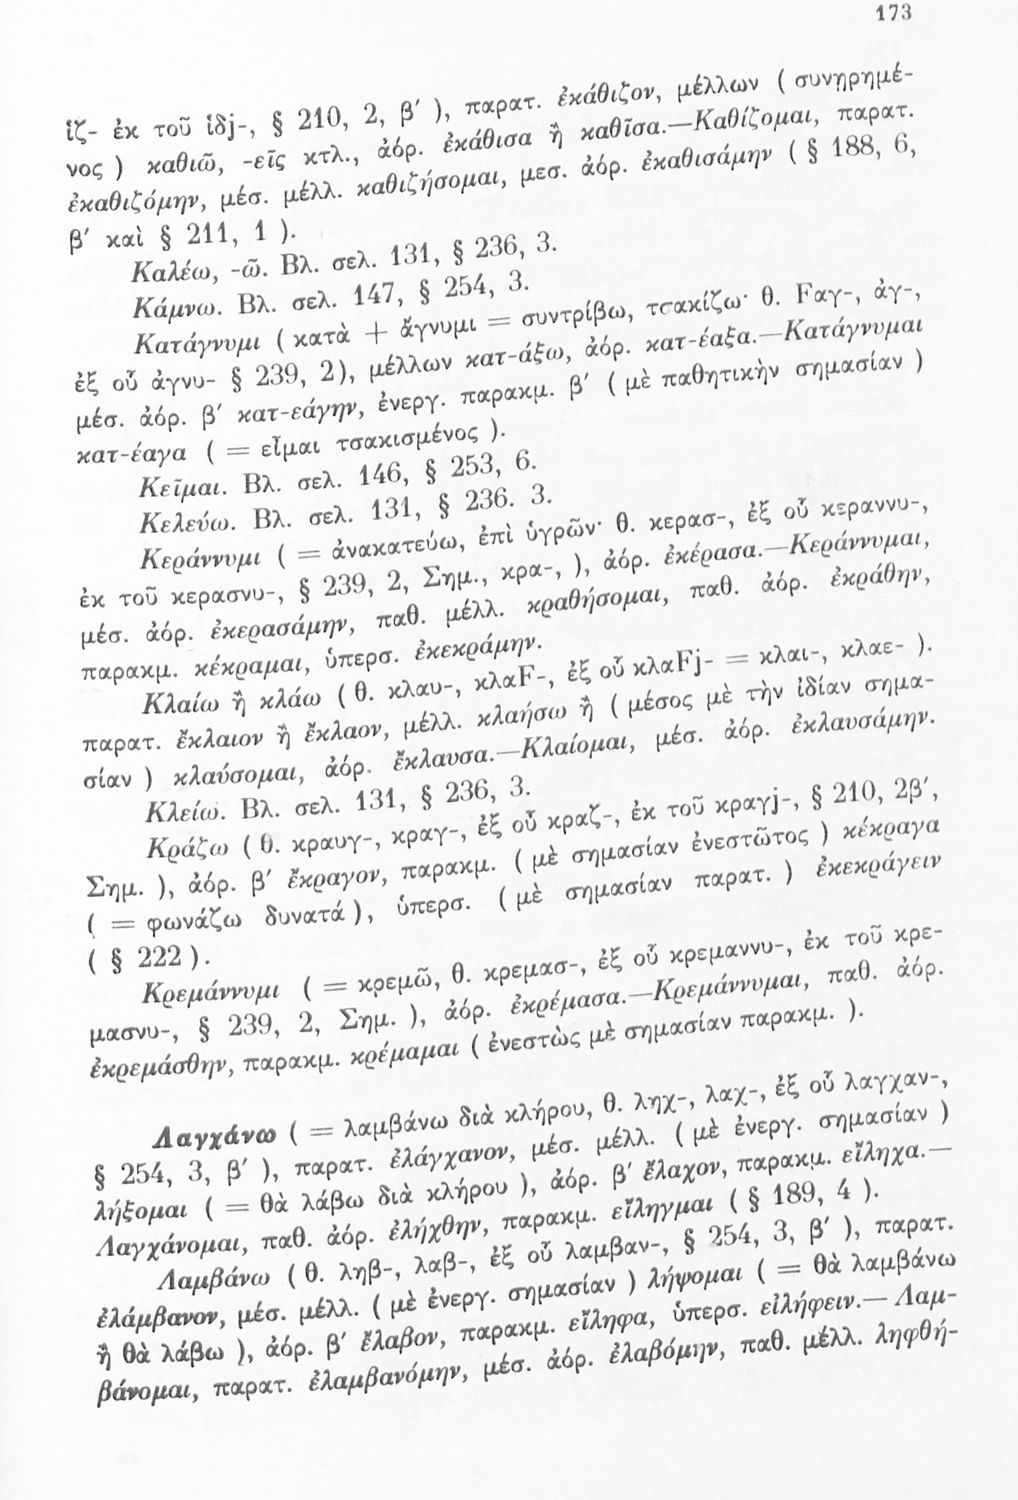 173
ἱζ- ἐκ τοῦ ἱδj-, § 210, 2, β′ ), παρατ. ἐκάθιζον, μέλλων ( συνῃρημέ-
νος ) καθιῶ, -εῖς κτλ., ἀόρ. ἐκάθισα ἢ καθῖσα.—Καθίζομαι, παρατ.
ἐκαθιζόμην, μέσ. μέλλ. καθιζήσομαι, μεσ. ἀόρ. ἐκαθισάμην ( § 188, 6,
β′ καὶ § 211, 1 ).
Καλέω, -ῶ. Βλ. σελ. 131, § 236, 3.
Κάμνω. Βλ. σελ. 147, § 254, 3.
Κατάγνυμι ( κατὰ + ἄγνυμι = συντρίβω, τσακίζω· θ. Fαγ-, ἀγ-,
ἐξ οὗ ἀγνυ- § 239, 2), μέλλων κατ-άξω, ἀόρ. κατ-έαξα.—Κατάγνυμαι
μέσ. ἀόρ. β′ κατ-εάγην, ἐνεργ. παρακμ. β′ ( μὲ παθητικὴν σημασίαν )
κατ-έαγα ( = εἶμαι τσακισμένος ).
Κεῖμαι. Βλ. σελ. 146, § 253, 6.
Κελεύω. Βλ. σελ. 131, § 236. 3.
Κεράννυμι ( = ἀνακατεύω, ἐπὶ ὑγρῶν· θ. κερασ-, ἐξ οὗ κεραννυ-,
ἐκ τοῦ κερασνυ-, § 239, 2, Σημ., κρα-, ), ἀόρ. ἐκέρασα.—Κεράννυμαι,
μέσ. ἀόρ. ἐκερασάμην, παθ. μέλλ. κραθήσομαι, παθ. ἀόρ. ἐκράθην,
παρακμ. κέκραμαι, ὑπερσ. ἐκεκράμην.
Κλαίω ἢ κλάω ( θ. κλαυ-, κλαF-, ἐξ οὗ κλαFj- = κλαι-, κλαε- ).
παρατ. ἔκλαιον ἢ ἔκλαον, μέλλ. κλαήσω ἢ ( μέσος μὲ τὴν ἰδίαν σημα-
σίαν ) κλαύσομαι, ἀόρ. ἔκλαυσα.—Κλαίομαι, μέσ. ἀόρ. ἐκλαυσάμην.
Κλείω. Βλ. σελ. 131, § 236, 3.
Κράζω ( θ. κραυγ-, κραγ-, ἐξ οὗ κραζ-, ἐκ τοῦ κραγj-, § 210, 2β′,
Σημ. ), ἀόρ. β′ ἔκραγον, παρακμ. ( μὲ σημασίαν ἐνεστῶτος ) κέκραγα
( = φωνάζω δυνατά ), ὑπερσ. ( μὲ σημασίαν παρατ. ) ἐκεκράγειν
( § 222 ).
Κρεμάννυμι ( = κρεμῶ, θ. κρεμασ-, ἐξ οὗ κρεμαννυ-, ἐκ τοῦ κρε-
μασνυ-, § 239, 2, Σημ. ), ἀόρ. ἐκρέμασα.—Κρεμάννυμαι, παθ. ἀόρ.
ἐκρεμάσθην, παρακμ. κρέμαμαι ( ἐνεστὼς μὲ σημασίαν παρακμ. ).
Λαγχάνω ( = λαμβάνω διὰ κλήρου, θ. ληχ-, λαχ-, ἐξ οὗ λαγχαν-,
§ 254, 3, β′ ), παρατ. ἐλάγχανον, μέσ. μέλλ. ( μὲ ἐνεργ. σημασίαν )
λήξομαι ( = θὰ λάβω διὰ κλήρου ), ἀόρ. β′ ἔλαχον, παρακμ. εἴληχα.—
Λαγχάνομαι, παθ. ἀόρ. ἐλήχθην, παρακμ. εἴληγμαι ( § 189, 4 ).
Λαμβάνω ( θ. ληβ-, λαβ-, ἐξ οὗ λαμβαν-, § 254, 3, β′ ), παρατ.
ἐλάμβανον, μέσ. μέλλ. ( μὲ ἐνεργ. σημασίαν ) λήψομαι ( = θὰ λαμβάνω
ἢ θὰ λάβω ), ἀόρ. β′ ἔλαβον, παρακμ. εἴληφα, ὑπερσ. εἰλήφειν.— Λαμ-
βάνομαι, παρατ. ἐλαμβανόμην, μέσ. ἀόρ. ἐλαβόμην, παθ. μέλλ. ληφθή-